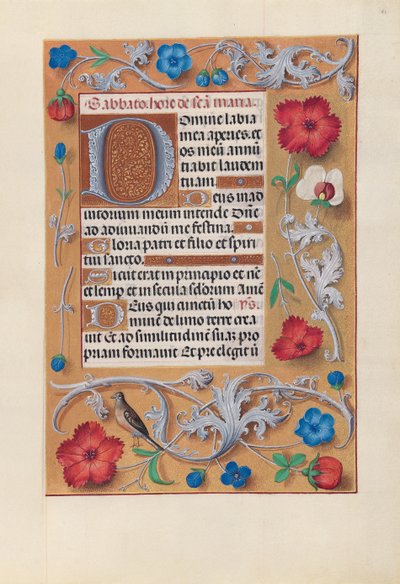 Sabbato: hore de sca maria.
Domine labia
mea aperies. et
os meum annū
tiabit laudem
tuam.
Deus in ad
iutorium meum intende Dñe
ad adiuuandū me festina.
Gloria patri et filio et spiri
tui sancto.
Sicut erat in principio et nē
et semp et in secula seclorum Amen
Deus qui
mine de limo terre crea
uit Et ad similitudinē suā pro
priam formauit Et preelegit ī